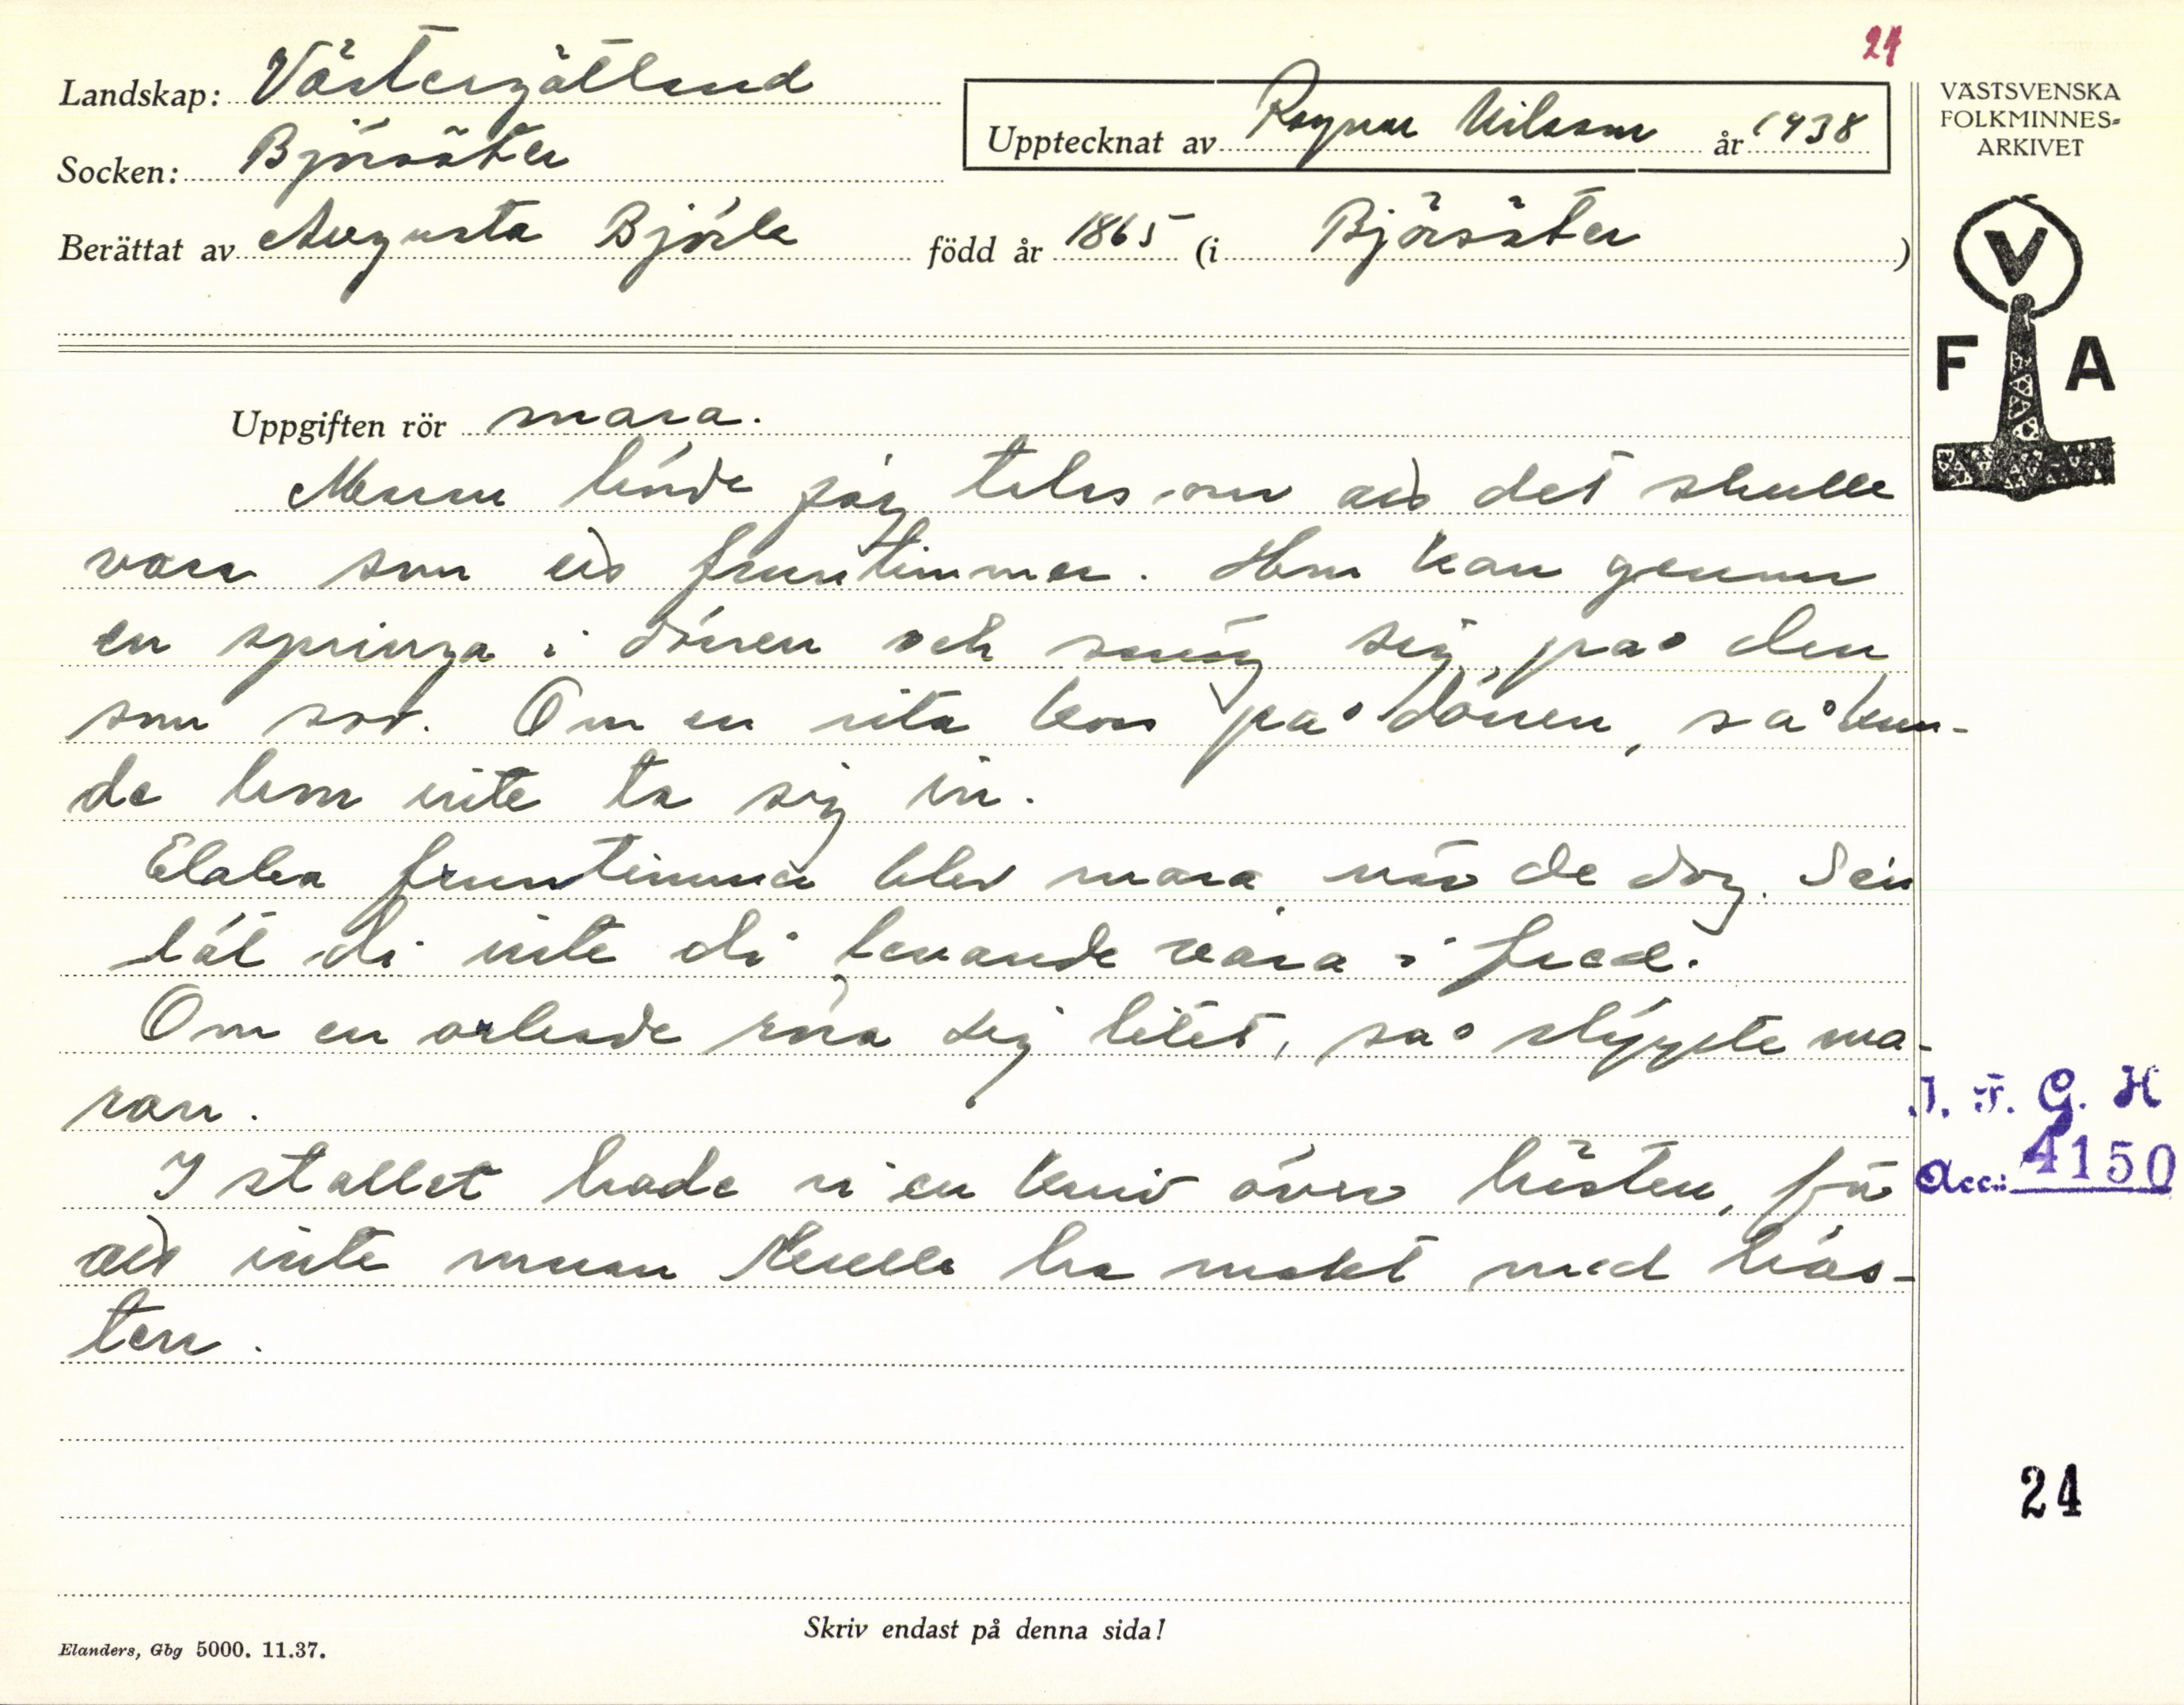 24
Landskap: Västergötland
Socken: Björsäter
Upptecknat av Ragnar Nilsson år 1938
Berättat av Augusta Björk född år 1865 (i Björsäter)
VÄSTSVENSKA
FOLKMINNES-
ARKIVET
V
F A
Uppgiften rör mara.
Maran hörde jag talas om att det skulle
vara som ett fruntimmer. Hon kan genom
en springa i dörren och smög sig på den
som sov. Om en rita kors på dörren, så kun-
de hon inte ta sig in.
Elaka fruntimmer blev mara när de dog. Sen
lät di inte di levande vara i fred.
Om en orkade röra sig litet, så släppte ma-
ran.
I stallet hade vi en kniv över hästen, för
att inte maran skulle ha makt med häs-
ten.
I. F. G. H
Acc.: 4150
24
Skriv endast på denna sida!
Elanders, Gbg 5000. 11.37.